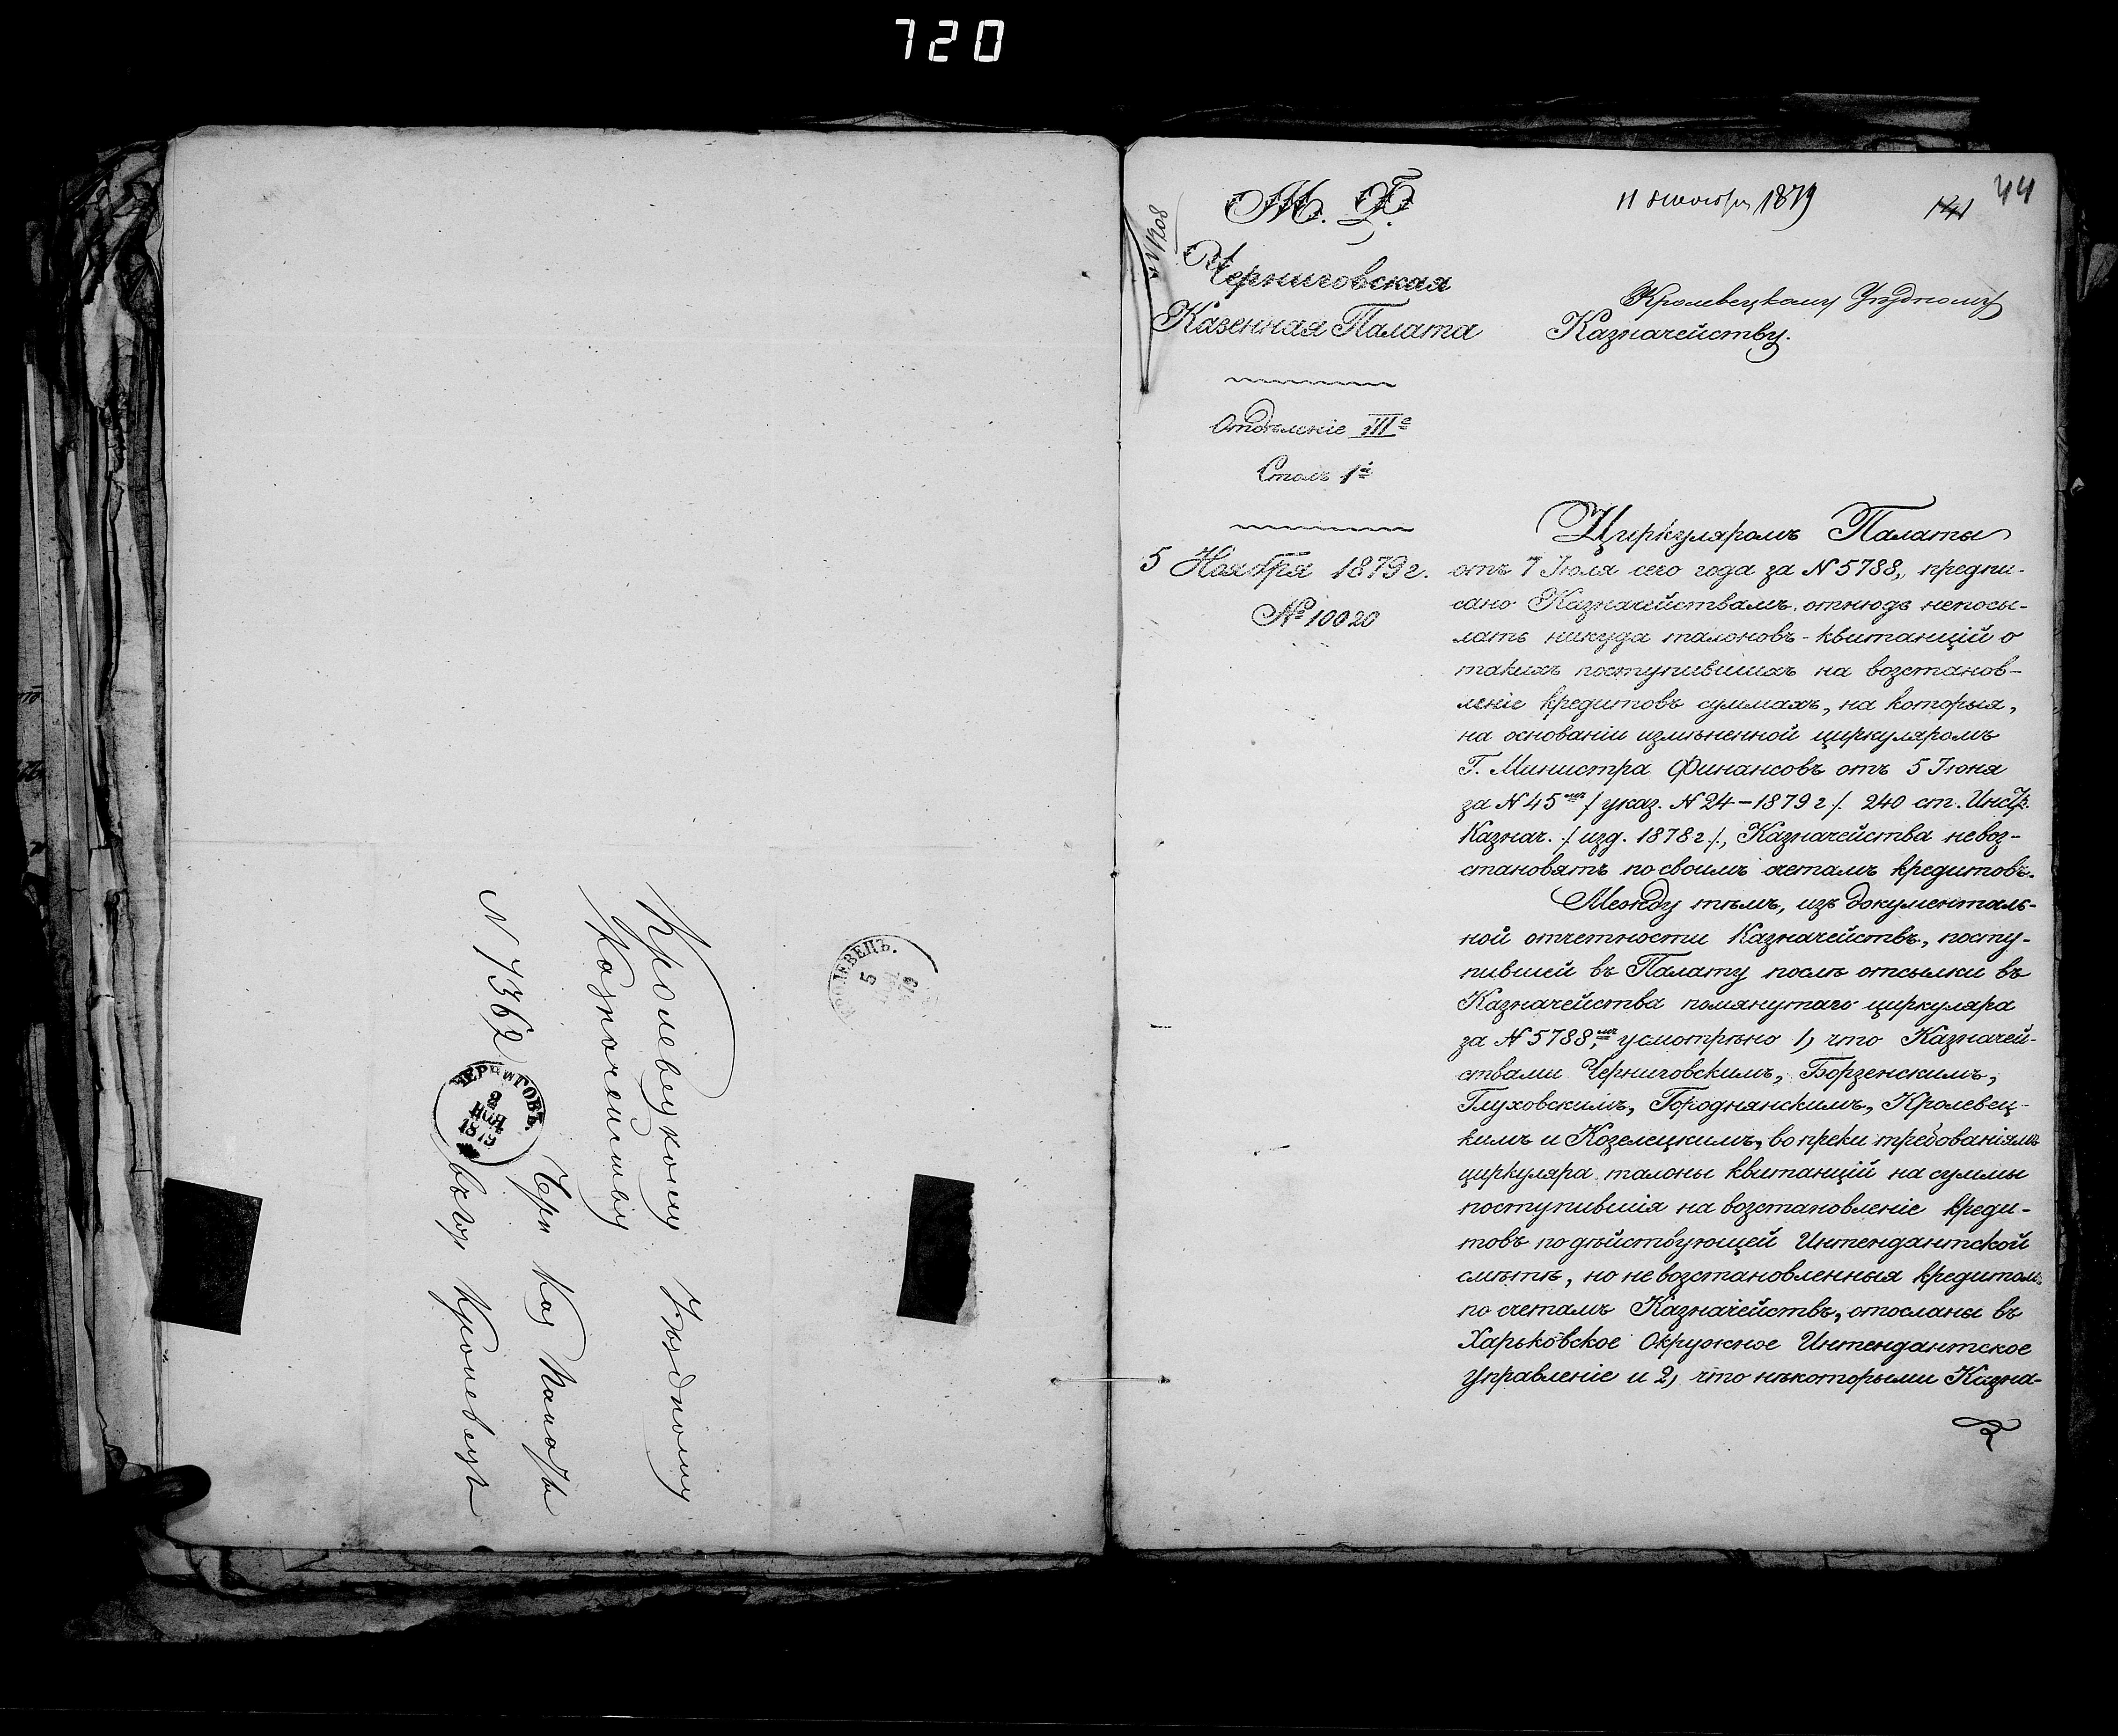 720
Кролевецкому Уѣздному
Казначейству
Черн Каз Палаты
въ гор Кролевецъ
N 7362
ЧЕРНИГОВЪ.
2
НОЯ
1879
КРОЛЕВЕЦЪ.
5
М. Ф.
Черниговская
Казенная Палата
Отдѣленіе III е
Столъ 1й
5 Ноября 1879 г.
№ 10020
11 1879
141
44
Кролевецкому Уѣздному
Казначейству.
Циркуляромъ Палаты
отъ 7 Іюля сего года за N 5788, предпи-
сано Казначействамъ, отнюдь непосы-
лать никуда талоновъ-квитанцій о
такихъ поступившихъ на возстанов-
леніе кредитовъ суммахъ, на которыя,
на основаніи измѣненной циркуляромъ
Г. Министра Финансовъ отъ 5 Іюня
за N 45мъ /указ. N 24-1879 г./ 240 ст. Инстр.
Казнач. /изд. 1878 г./, Казначейства невоз-
становятъ по своимъ счетамъ кредитовъ.
Между тѣмъ, изъ документаль-
ной отчетности Казначействъ, посту-
пившей въ Палату послѣ отсылки въ
Казначейства помянутаго циркуляра
за N 5788,мъ усмотрѣно 1, что Казначей-
ствами Черниговскимъ, Борзенскимъ,
Глуховскимъ, Городнянскимъ, Кролевец-
кимъ и Козелецкимъ, вопреки требованіямъ
циркуляра талоны квитанцій на суммы
поступившія на возстановленіе креди-
товъ по дѣйствующей Интендантской
смѣтѣ, но невозстановленныя кредитомъ
по счетамъ Казначействъ, отосланы въ
Харьковское Окружное Интендантское
Управленіе и 2, что нѣкоторыми Казна-